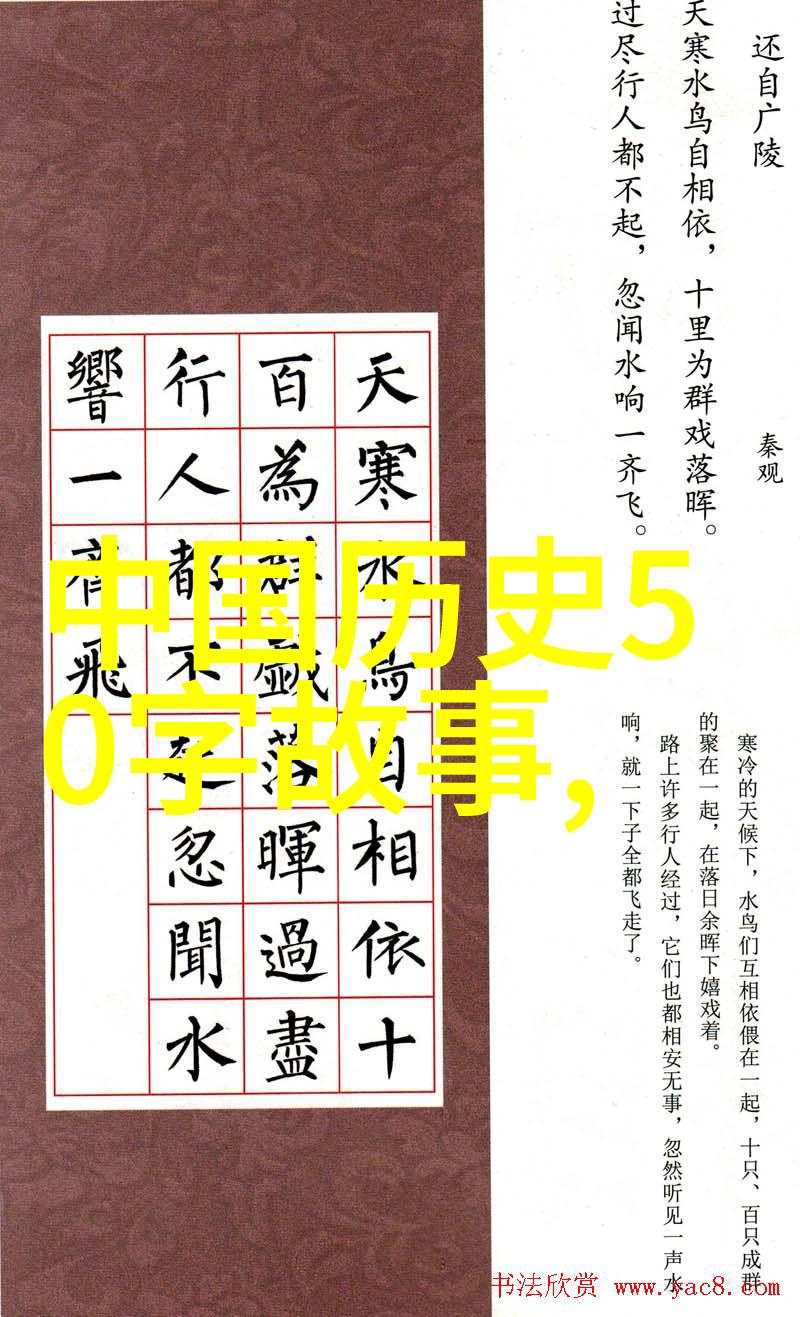 还自广陵
秦观
天寒水鸟自相依，十里为群戏落晖。
过尽行人都不起，忽闻水响一齐飞。
寒冷的天候下，水鸟们互相依偎在一起，十只、百只成群
的聚在一起，在落日余晖下嬉戏着。
路上许多行人经过，它们也都相安无事，忽然听见一声水
响，就一下子全都飞走了。
天寒水鳥自相依十
百為群戲落暉過盡
行人都不起忽聞水
響一齊飛
中国历史5
0字故事,
书法欣赏 www.yac8.com